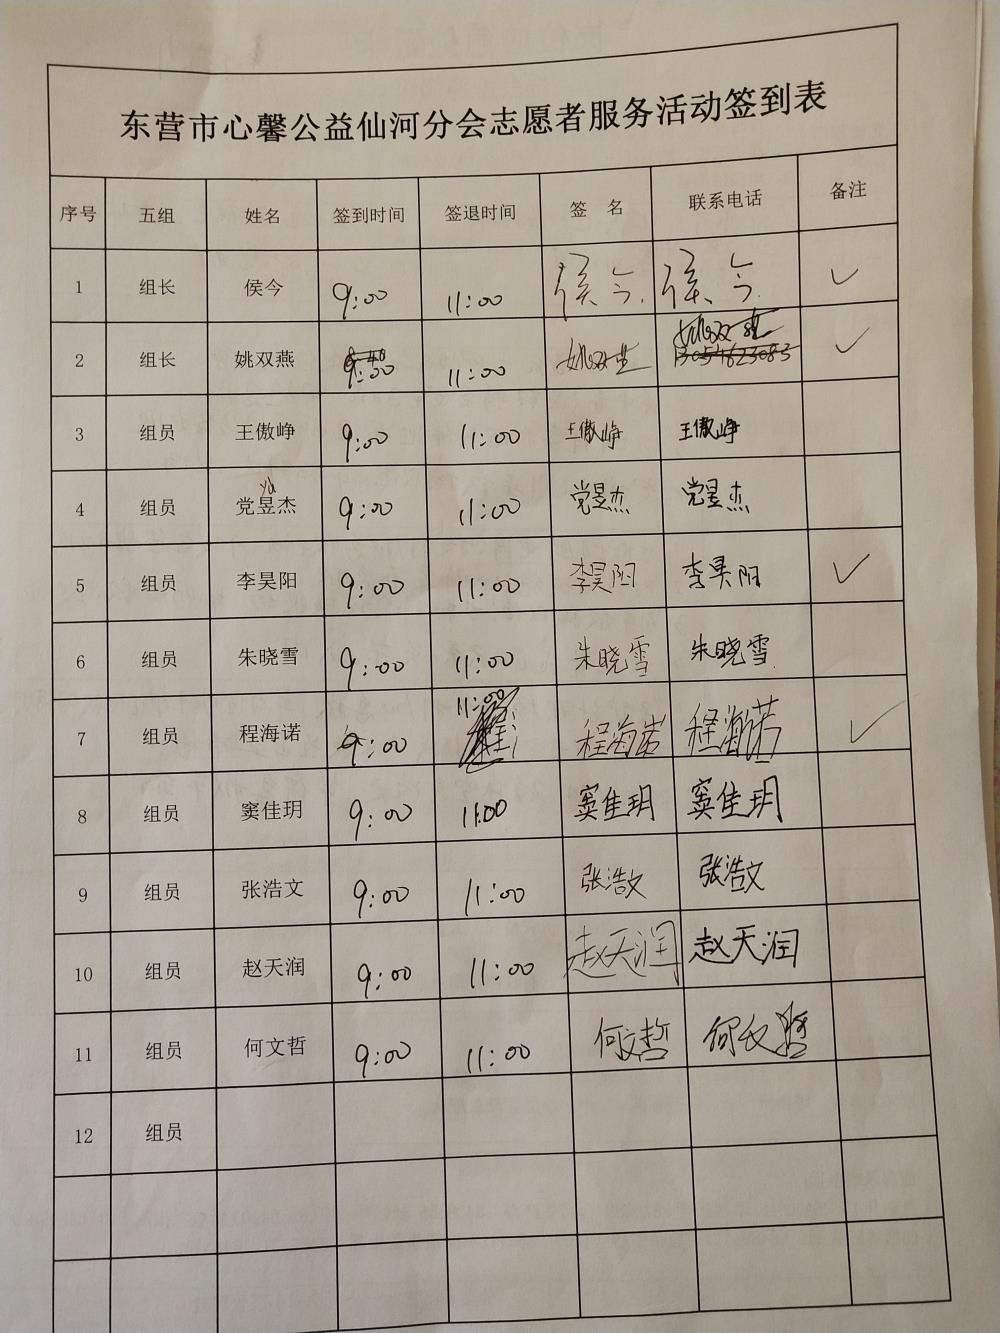 东营市心馨公益仙河分会志愿者服务活动签到表
序号 五组 姓名 签到时间 签退时间 签 名 联系电话 备注
1 组长 侯今 9:00 11:00 侯今. 侯、今. ✓
2 组长 姚双燕 9:00 11:00 姚双燕 姚双燕 13054623083 ✓
3 组员 王傲峥 9:00 11:00 王傲峥 王傲峥
yu
4 组员 党昱杰 9:00 11:00 党昱杰 党昱杰
5 组员 李昊阳 9:00 11:00 李昊阳 李昊阳 ✓
6 组员 朱晓雪 9:00 11:00 朱晓雪 朱晓雪
7 组员 程海诺 9:00 11:00 程海诺 程海诺 ✓
8 组员 窦佳玥 9:00 11:00 窦佳玥 窦佳玥
9 组员 张浩文 9:00 11:00 张浩文 张浩文
10 组员 赵天润 9:00 11:00 赵天润 赵天润
11 组员 何文哲 9:00 11:00 何文哲 何文哲
12 组员